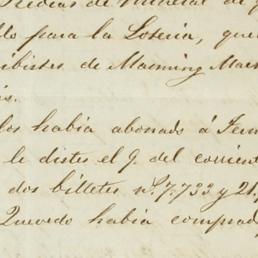 de mineral de
para la Loteria, que
de Manning Mac
los habia abonado á
le distes el 9. del corrient
dos billetes nº 7.733 y 21,
Quevedo habia comprad